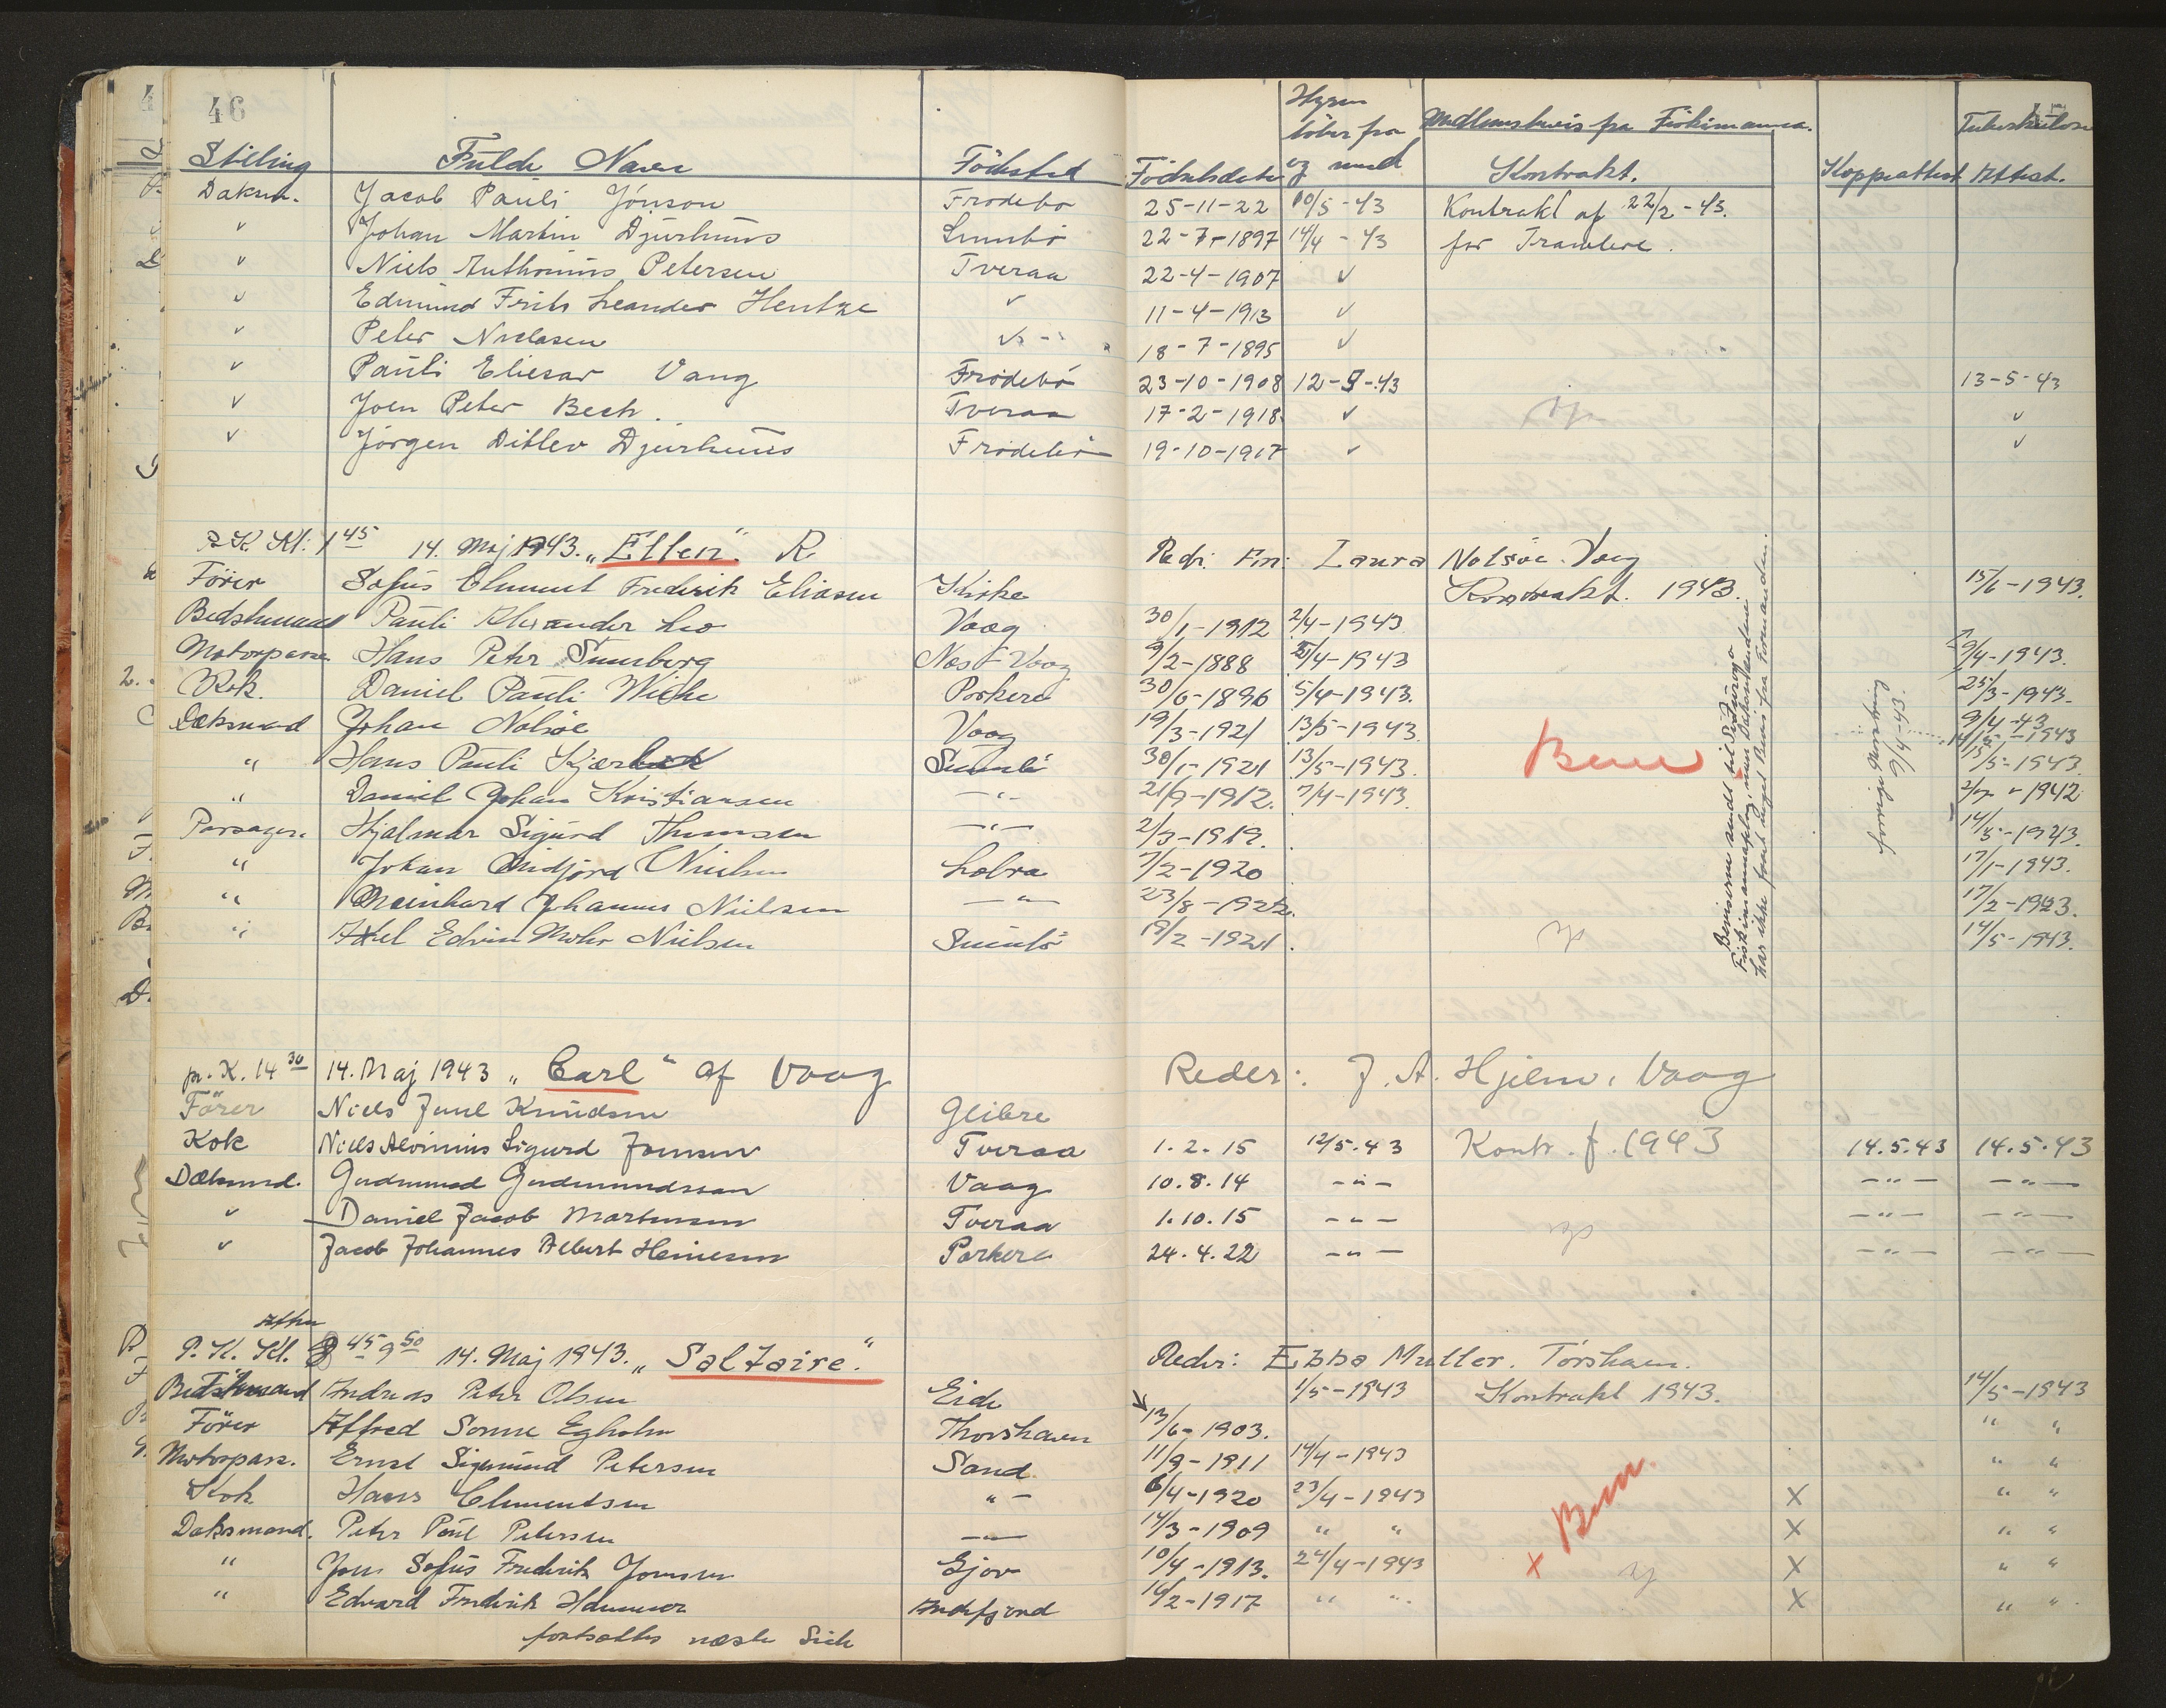 46
Stilling Fulde Navn Födested Födselsdato Hyren löber fra og med Medlemsbevis fra Fiskimanna. Kontrakt. Koppeattest Tuberkulose Attest.
Daksm. Jacob Pauli Jónson Frodebo 25-11-22 10/5-43 Kontrakt af 22/2-43.
" Johan Martin Djurhuus Sumbö 22-7-1897 14/4-43 for Trawlere.
" Niels Anthonius Petersen Tveraa 22-4-1907 "
" Edmund Frits Leander Hentze " 11-4-1913 "
" Peter Niclasen " 18-7-1895 "
" Pauli Eliesar Vang Frodebö 23-10-1908 12-5-43 13-5-43
" Joen Peter Bech. Tveraa 17-2-1918 " "
" Jörgen Ditlev Djurhuus Frodebö 19-10-1917 " "
P.K. Kl: 1 45 14. Maj 1943. „Ellen" R Redr. Fru: Laura Nolsöe. Vaag
Förer Sofus Clement Frederik Eliasen Kirke Kontrakt. 1943. 15/6-1943.
Bedstemand Pauli Alexander Leo Vaag 30/1-1912 2/4-1943
Motorpasse Hans Peter Sumberg Næs-Vaag 9/2-1888 5/4-1943 9/4-1943.
Kok. Daniel Pauli Wiche Porkere 30/6-1896 5/4-1943. 25/3-1943.
Dæksmand Johan Nolsöe Vaag 19/3-1921 13/5-1943 9/4-43
" Hans Pauli Kjærbæk Sumbö 30/1-1921 13/5-1943. 13/5-1943.
" Daniel Johan Kristiansen -"- 21/9-1912. 7/4-1943. 1942
Passager. Hjalmar Sigurd Thomsen -"- 2/3-1919. 14/5-1943.
" Johan Midfjord Nielsen Lobra 7/2-1920 17/1-1943.
" Meinhard Johannes Nielsen -"- 23/8-1922. 17/2-1943.
" Axel Edvin Mohr Nielsen Sumbö 19/2-1921. 14/5-1943.
Beviserne sendt til Sjóvinga
Fiskimannafelag, men Dæksmændene
har ikke faaet noget Bevis fra Formanden.
forrige Mønstring 9/4-43.
pr. K. 14 30 14. Maj 1943 „Carl" af Vaag Reder: J. A. Hjelm, Vaag
Förer Niels Juul Knudsen Glibre
Kok Niels Alvinius Sigurd Jensen Tveraa 1.2.15 12/5.43 Kontr. f. 1943 14.5.43 14.5.43
Dæksmd. Gudmund Gudmundsson Vaag 10.8.14 -"- -"- -"-
" Daniel Jacob Mortensen Tveraa 1.10.15 -"- -"- -"-
" Jacob Johannes Albert Heinesen Porkere 24.4.22 -"- -"- -"-
Aften
P.K. Kl. 8 45 9 50 14. Maj 1943. „Saltaire." Redr: Ebba Müller. Törshavn.
Bedstemand Andreas Peter Olsen Eide 1/5-1943 Kontrakt 1943. 14/5-1943
Förer Alfred Sonne Egholm Thorshavn 13/6-1903. " "
Motorpass. Ernst Sigmund Petersen Sand 11/9-1911 14/4-1943 " "
Kok Hans Clementsen "- 6/4-1920 23/4-1943 X " "
Daksmand. Peter Poul Petersen -"- 14/3-1909 " " X " "
" Jens Sofus Frederik Joensen Gjov 10/4-1913. 24/4-1943 x X " "
" Edvard Frederik Hammer Andefjord 14/2-1917 " " X " "
fortsættes næste Side